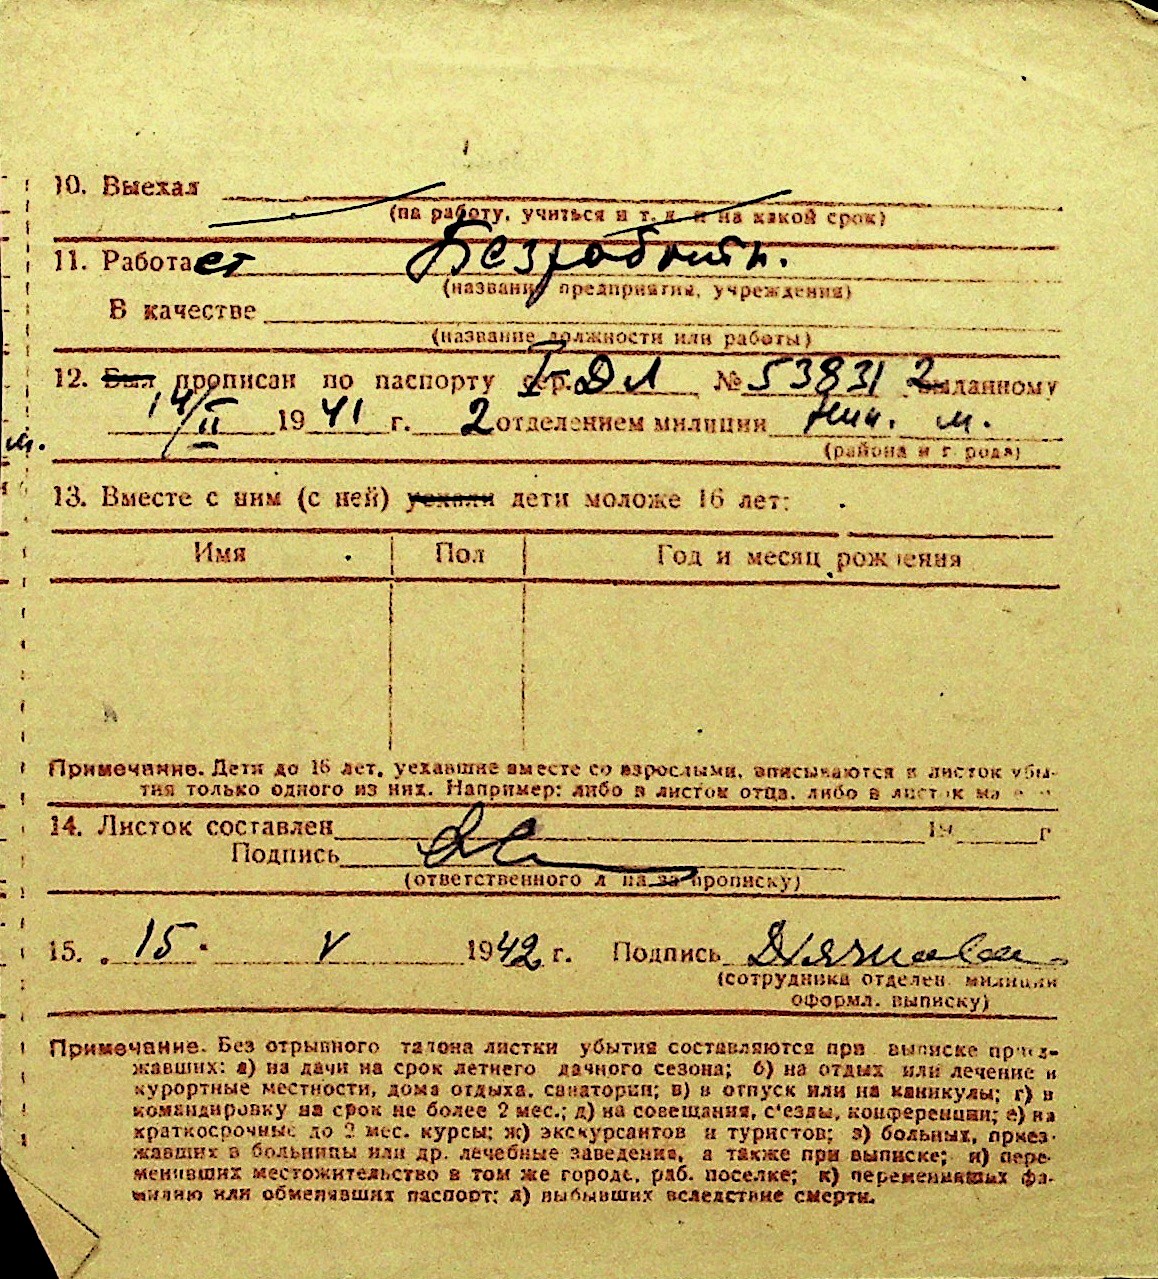 10. Выехал
(на работу, учиться и т. д. и на какой срок)
11. Работает Безработн.
(название предприятия, учреждения)
В качестве
(название должности или работы)
12. Был прописан по паспорту сер. I ДЛ № 538312 выданному
14/II 1941 г. 2 отделением милиции Мин. м.
(района и города)
м.
13. Вместе с ним (с ней) уехали дети моложе 16 лет:
Имя Пол Год и месяц рождения
Примечание. Дети до 16 лет, уехавшие вместе со взрослыми, вписываются в листок убы-
тия только одного из них. Например: либо в листок отца, либо в листок ма
14. Листок составлен 19 г
Подпись
(ответственного лица за прописку)
15. 15. V 1942 г. Подпись
(сотрудника отделен. милиции
оформл. выписку)
Примечание. Без отрывного талона листки убытия составляются при выписке приез-
жавших: а) на дачи на срок летнего дачного сезона; б) на отдых или лечение в
курортные местности, дома отдыха, санатории; в) в отпуск или на каникулы; г) в
командировку на срок не более 2 мес.; д) на совещания, с'езды, конференции; е) на
краткосрочные до 2 мес. курсы; ж) экскурсантов и туристов; з) больных, приез-
жавших в больницы или др. лечебные заведения, а также при выписке; и) пере-
менивших местожительство в том же городе, раб. поселке; к) переменивших фа-
милию или обменявших паспорт; л) выбывших вследствие смерти.